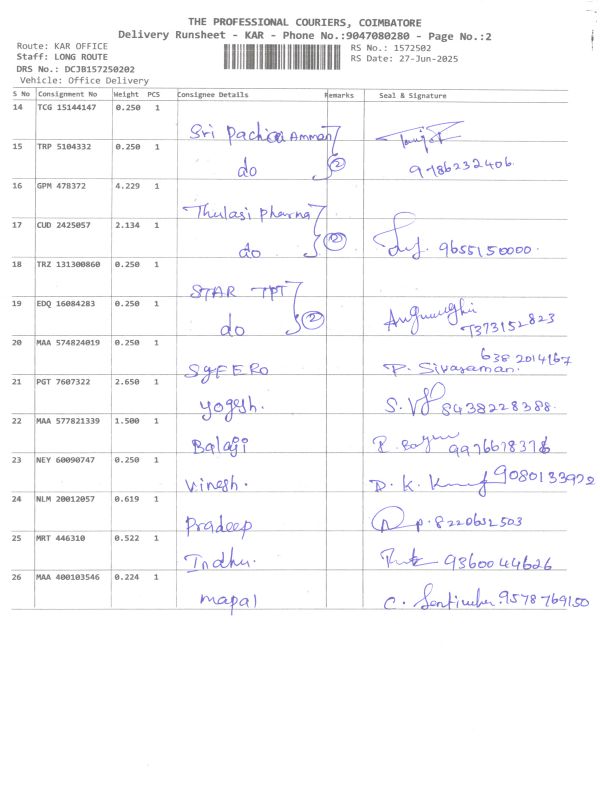 THE PROFESSIONAL COURIERS, COIMBATORE
Delivery Runsheet - KAR - Phone No.:9047080280 - Page No.:2
Route: KAR OFFICE RS No.: 1572502
Staff: LONG ROUTE RS Date: 27-Jun-2025
DRS No.: DCJB157250202
Vehicle: Office Delivery
S No Consignment No Weight PCS Consignee Details Remarks Seal & Signature
14 TCG 15144147 0.250 1
Sri Pachai Amman
15 TRP 5104332 0.250 1
do 2 9786232406
16 GPM 478372 4.229 1
Thulasi pharma
17 CUD 2425057 2.134 1
do 2 9655150000.
18 TRZ 131300860 0.250 1
STAR TPT
19 EDQ 16084283 0.250 1
do 2 7373152823
20 MAA 574824019 0.250 1
638 2014167
SgFERO P. Sivaraman.
21 PGT 7607322 2.650 1
yogesh. 8438228388.
22 MAA 577821339 1.500 1
Balaji 9976678378
23 NEY 60090747 0.250 1
vinesh. D. K. 9080133972
24 NLM 20012057 0.619 1
Pradeep p. 8220652503
25 MRT 446310 0.522 1
Indhu. 9360044626
26 MAA 400103546 0.224 1
mapal 9578769150